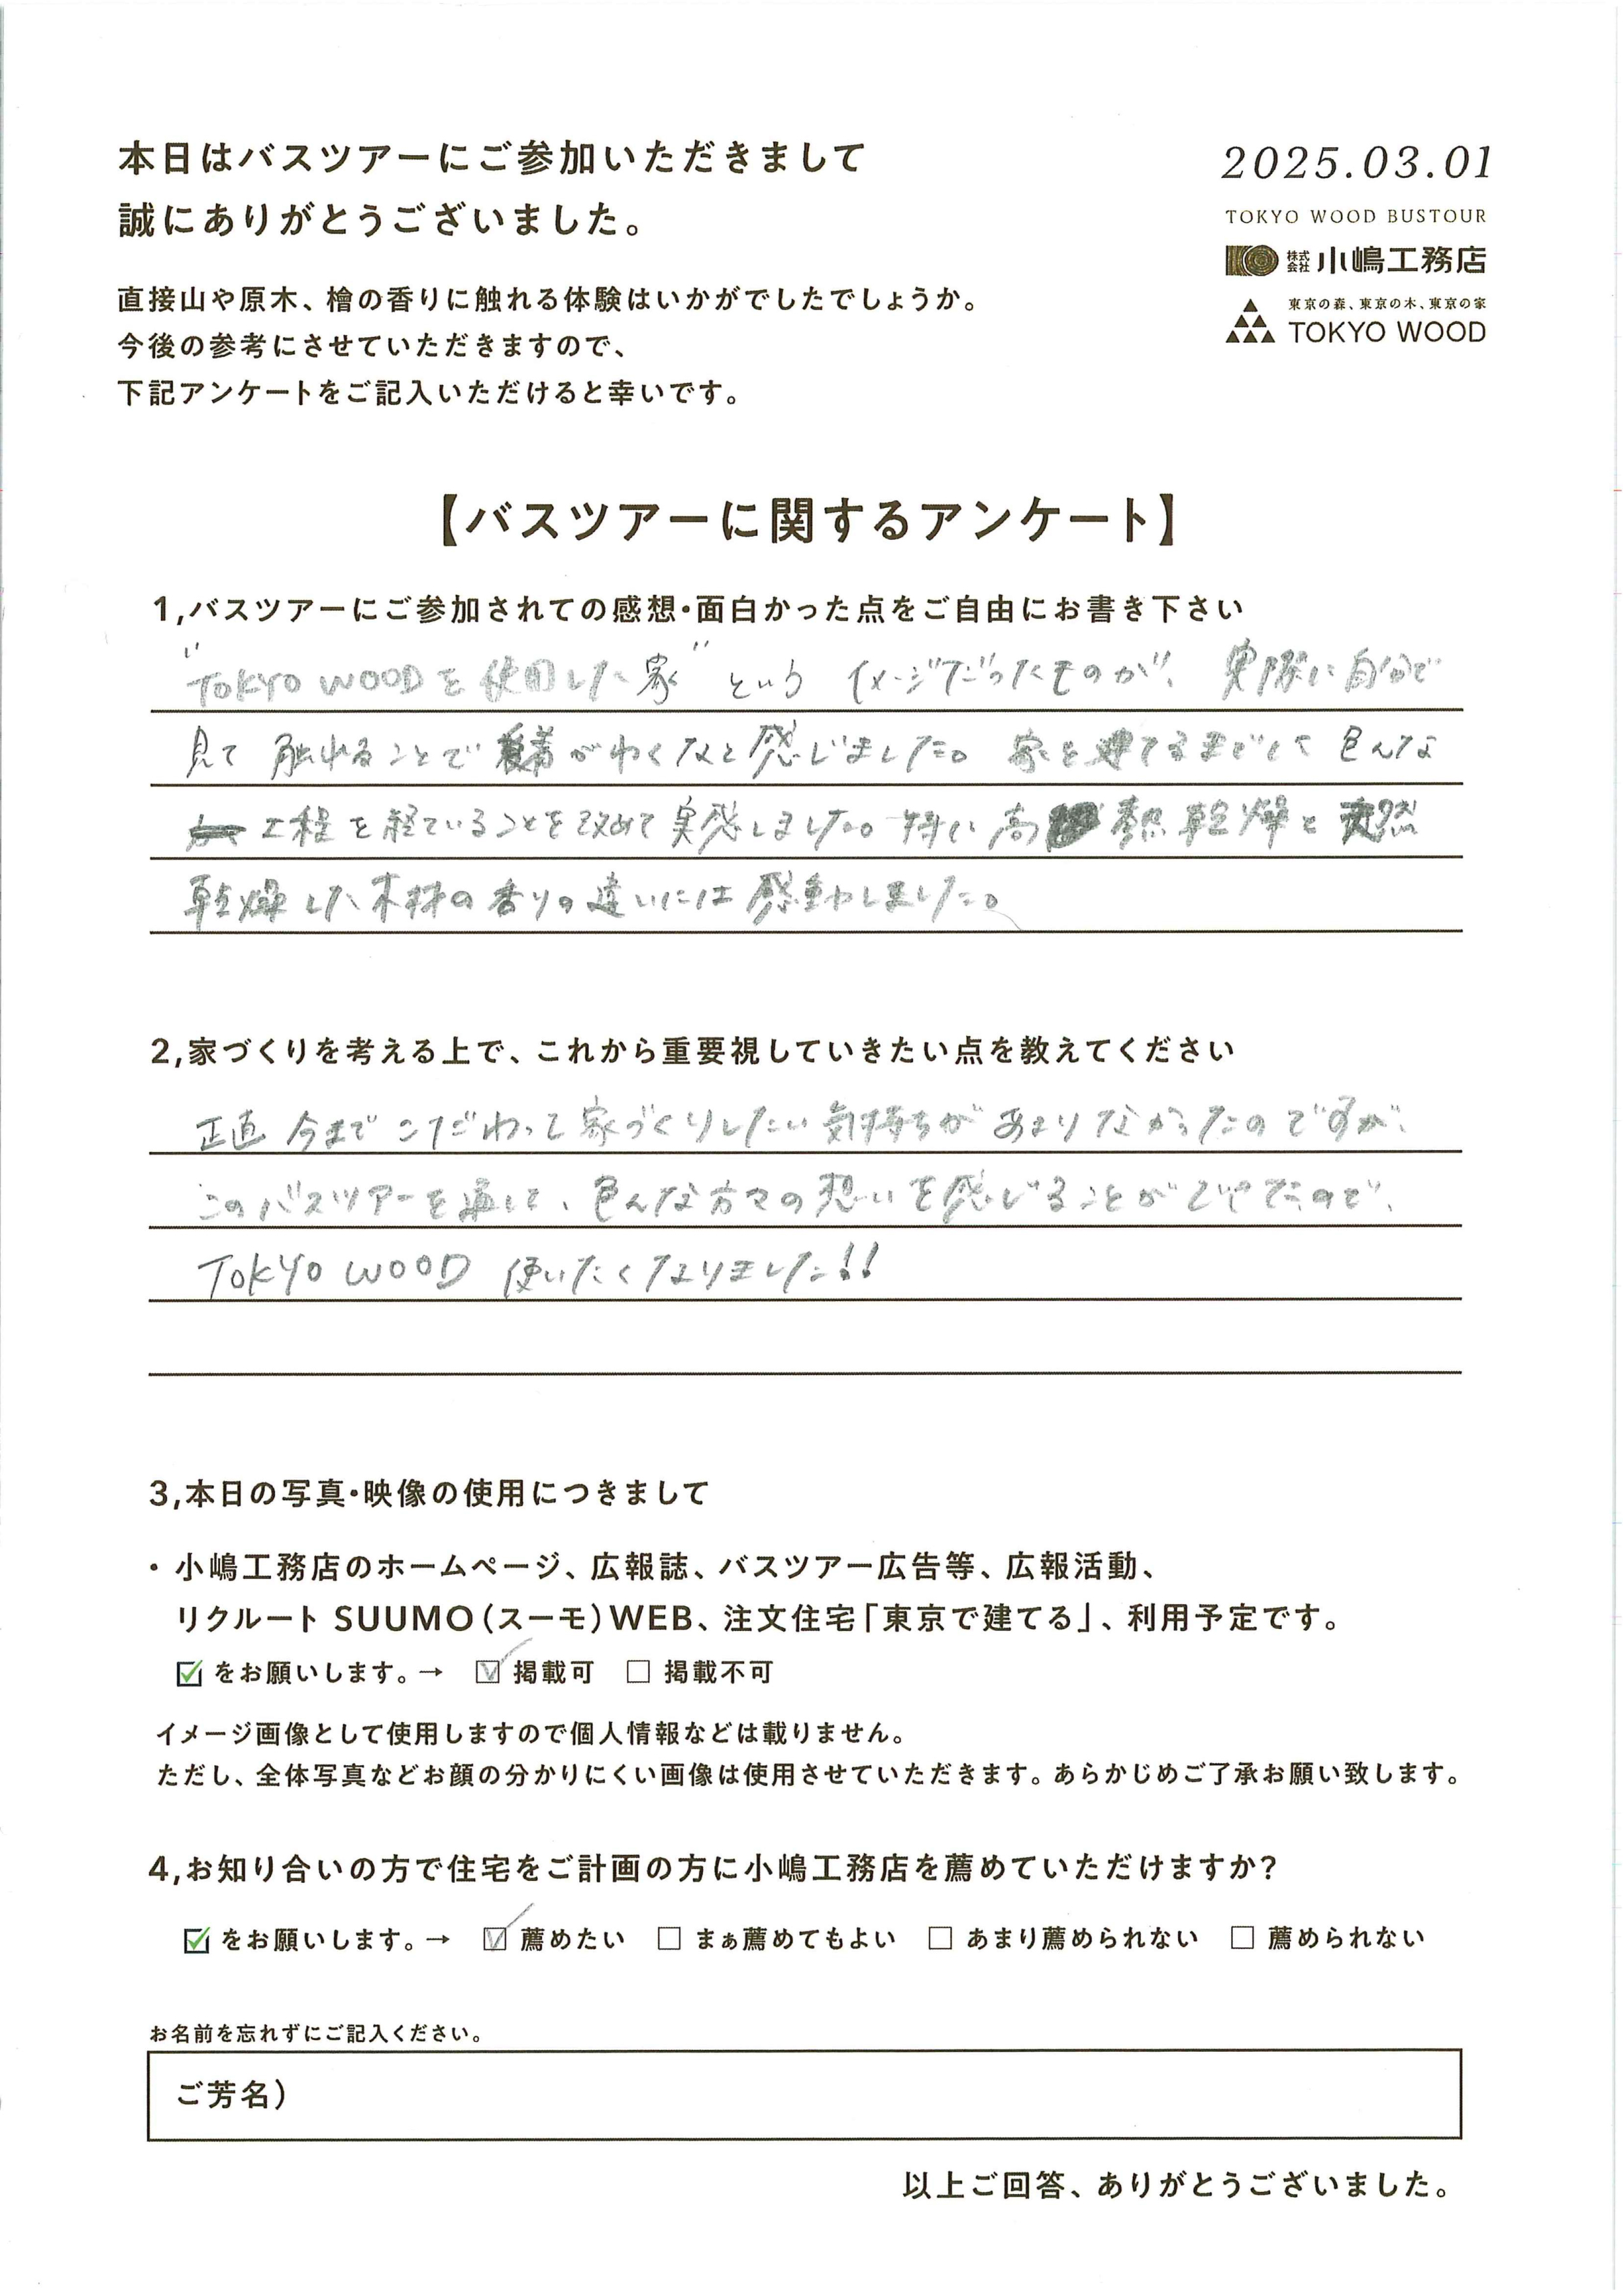 本日はバスツアーにご参加いただきまして
誠にありがとうございました。
直接山や原木、檜の香りに触れる体験はいかがでしたでしょうか。
今後の参考にさせていただきますので、
下記アンケートをご記入いただけると幸いです。
2025.03.01
TOKYO WOOD BUSTOUR
株式会社 小嶋工務店
東京の森、東京の木、東京の家
TOKYO WOOD
【バスツアーに関するアンケート】
1,バスツアーにご参加されての感想・面白かった点をご自由にお書き下さい
"TOKYO WOODを使用した家"という イメージだったものが、実際に自分で
見て 触れることで 着がわくなと感じました。家を建てるまでして 色んな
工程を経ていることを改めて実感しました。特に高 熱乾燥と天然
乾燥した木材の香りの違いには感動しました。
2,家づくりを考える上で、これから重要視していきたい点を教えてください
正直 今まで こだわって家づくりしたい気持ちが あまりなかったのですが、
このバスツアーを通して、色んな方々の想いを感じることができたので、
TOKYO WOOD 使いたくなりました!!
3,本日の写真・映像の使用につきまして
・小嶋工務店のホームページ、広報誌、バスツアー広告等、広報活動、
リクルート SUUMO(スーモ)WEB、注文住宅「東京で建てる」、利用予定です。
☑ をお願いします。→ ☑ 掲載可 □ 掲載不可
イメージ画像として使用しますので個人情報などは載りません。
ただし、全体写真などお顔の分かりにくい画像は使用させていただきます。あらかじめご了承お願い致します。
4,お知り合いの方で住宅をご計画の方に小嶋工務店を薦めていただけますか?
☑ をお願いします。→ ☑ 薦めたい □ まぁ薦めてもよい □ あまり薦められない □ 薦められない
お名前を忘れずにご記入ください。
ご芳名)
以上ご回答、ありがとうございました。